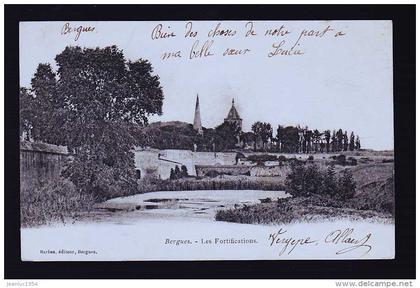 Bergues.
Bien des choses de notre part à
ma belle sœur Lucie
Bergues. - Les Fortifications.
Marban, éditeur, Bergues.
luc1954
www.delcampe.net